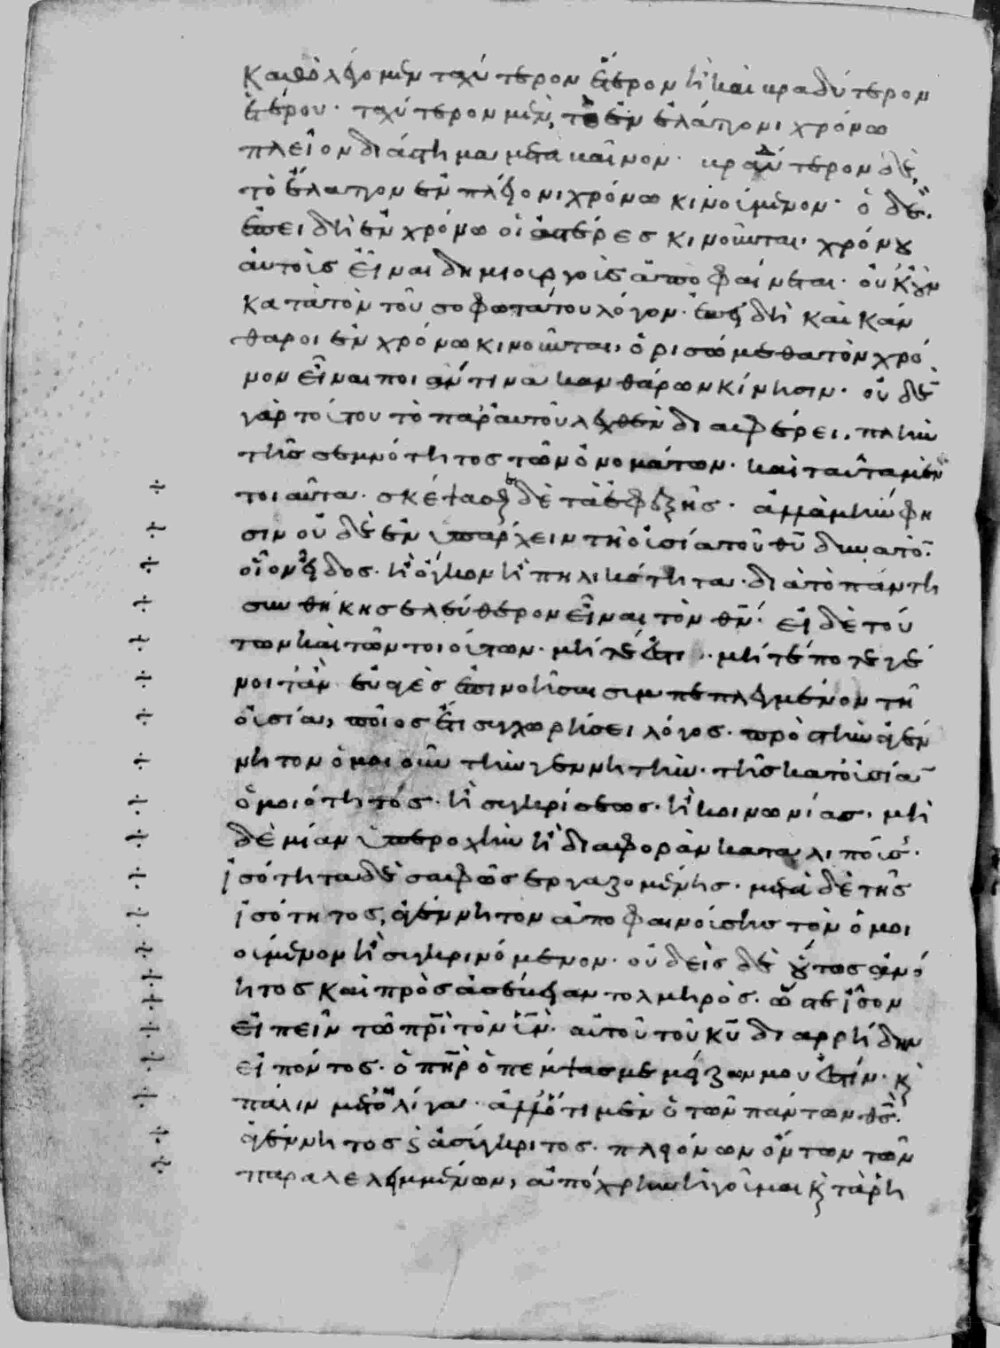 καθὸ λέγομεν ταχύτερον ἕτερον ἢ καὶ βραδύτερον
ἑτέρου· ταχύτερον μὲν, τὸ ἐν ἐλάττονι χρόνω
πλεῖον διάστημα μετακαῖνον· βραδύτερον δὲ,
τὸ ἔλαττον ἐν πλείονι χρόνω κινούμενον· ὁ δὲ
ἐπειδὴ ἐν χρόνω οἱ ἀστέρες κινοῦνται, χρόνου
αὐτοὺς εἶναι δημιουργοὺς ἀποφαίνεται· οὐκοῦν
κατὰ τὸν τοῦ σοφωτάτου λόγον· ἐπειδὴ καὶ κάν
θαροι ἐν χρόνω κινοῦνται, ὁρισώμεθα τὸν χρό
νον εἶναι ποιάν τινα κανθάρων κίνησιν· οὐδὲν
γὰρ τούτου τὸ παρ' αὐτοῦ λεχθὲν διαφέρει, πλὴν
τῆς σεμνότητος τῶν ὀνομάτων· καὶ ταῦτα μὲν
τοιαῦτα· σκέψασθε δὲ τὰ ἐφεξῆς· ἀλλὰ μὴν φη
σιν οὐδὲ ἐνυπάρχειν τῆ οὐσία τοῦ θυ δυνατὸν·
οἷον εἶδος· ἢ ὄγκον ἢ πηλικότητα· διὰ τὸ πάντη
συνθήκης ἐλεύθερον εἶναι τὸν θν· εἰ δὲ τού
των καὶ τῶν τοιούτων· μήτε ἔστι · μήτέ ποτε γέ
νοιτ' ἂν εὐαγὲς ἐπινοῆσαι συμπεπλεγμένον τῆ
οὐσία, ποῖος ἔτι συγχωρήσει λόγος· πρὸς τὴν ἀγέν
νητον ὁμοιοῦν τὴν γεννητὴν· τῆς κατ' οὐσίαν
ὁμοιότητός· ἢ συγκρίσεως· ἢ κοινωνίας· μη
δεμίαν ὑπεροχὴν ἢ διαφορὰν καταλιπούσης·
ἰσότητα δὲ σαφῶς ἐργαζομένης· μετὰ δὲ τῆς
ἰσότητος, ἀγέννητον ἀποφαινούσης τὸν ὁμοι
ούμενον ἢ συγκρινόμενον· οὐδεὶς δὲ οὕτως ἀνό
ητος καὶ πρὸς ἀσέβειαν τολμηρὸς· ὥστε ἶσον
εἰπεῖν τῶ πρι τὸν υν· αὐτοῦ τοῦ κυ διαρρήδην
εἰπόντος· ὁ πηρ ὁ πέμψας με μείζων μου ἐστίν· κ
πάλιν μετ' ὀλίγα· ἀλλ' ὅτι μὲν ὁ τῶν πάντων θς·
ἀγέννητος κ ἀσύγκριτος· πλειόνων ὄντων τῶν
παραλελειμμένων, ἀποχρῆν ἡγοῦμαι κ τὰ ῥη